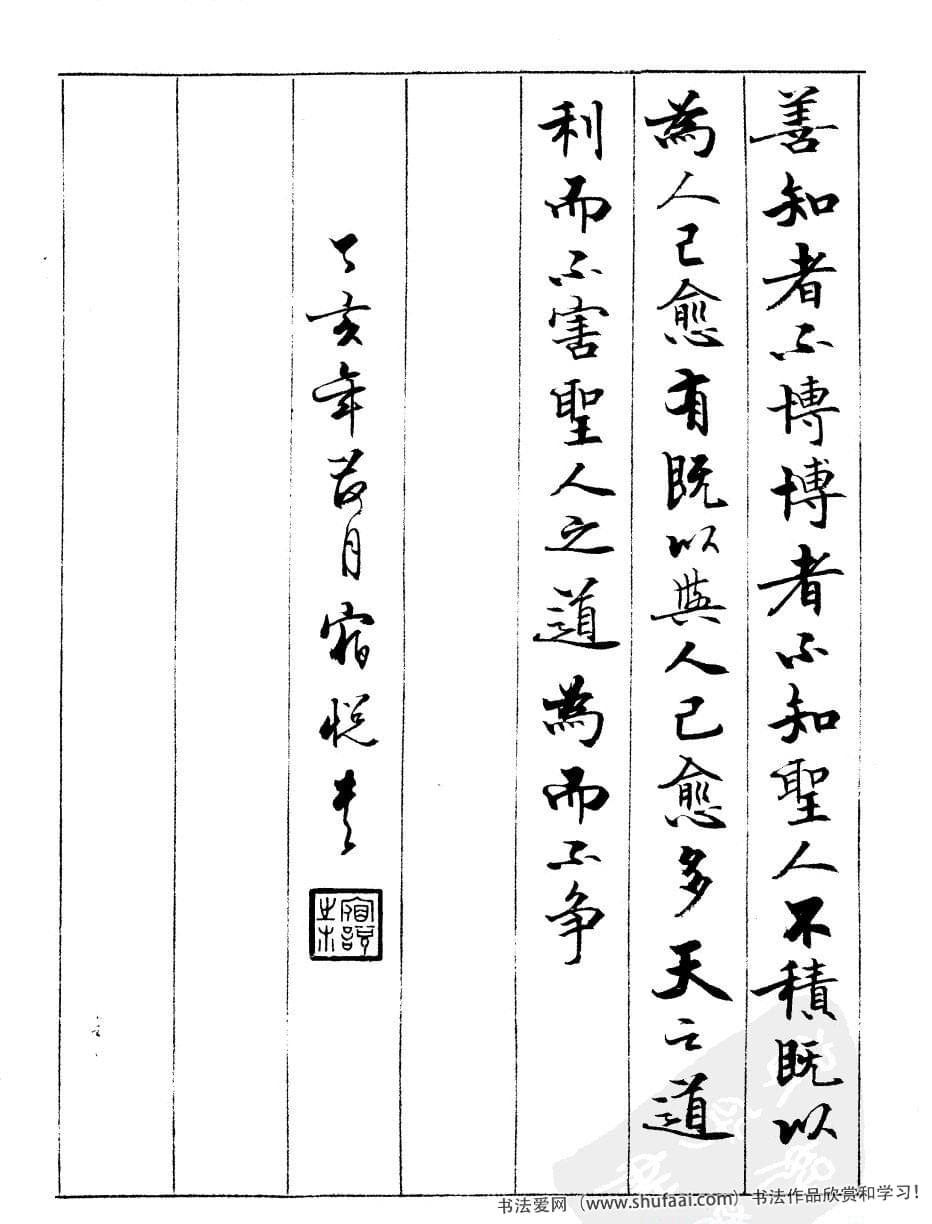 善知者不博博者不知聖人不積既以
為人己愈有既以與人己愈多天之道
利而不害聖人之道為而不争
丁亥年荷月宿悦書
书法爱网（www.shufaai.com）书法作品欣赏和学习！